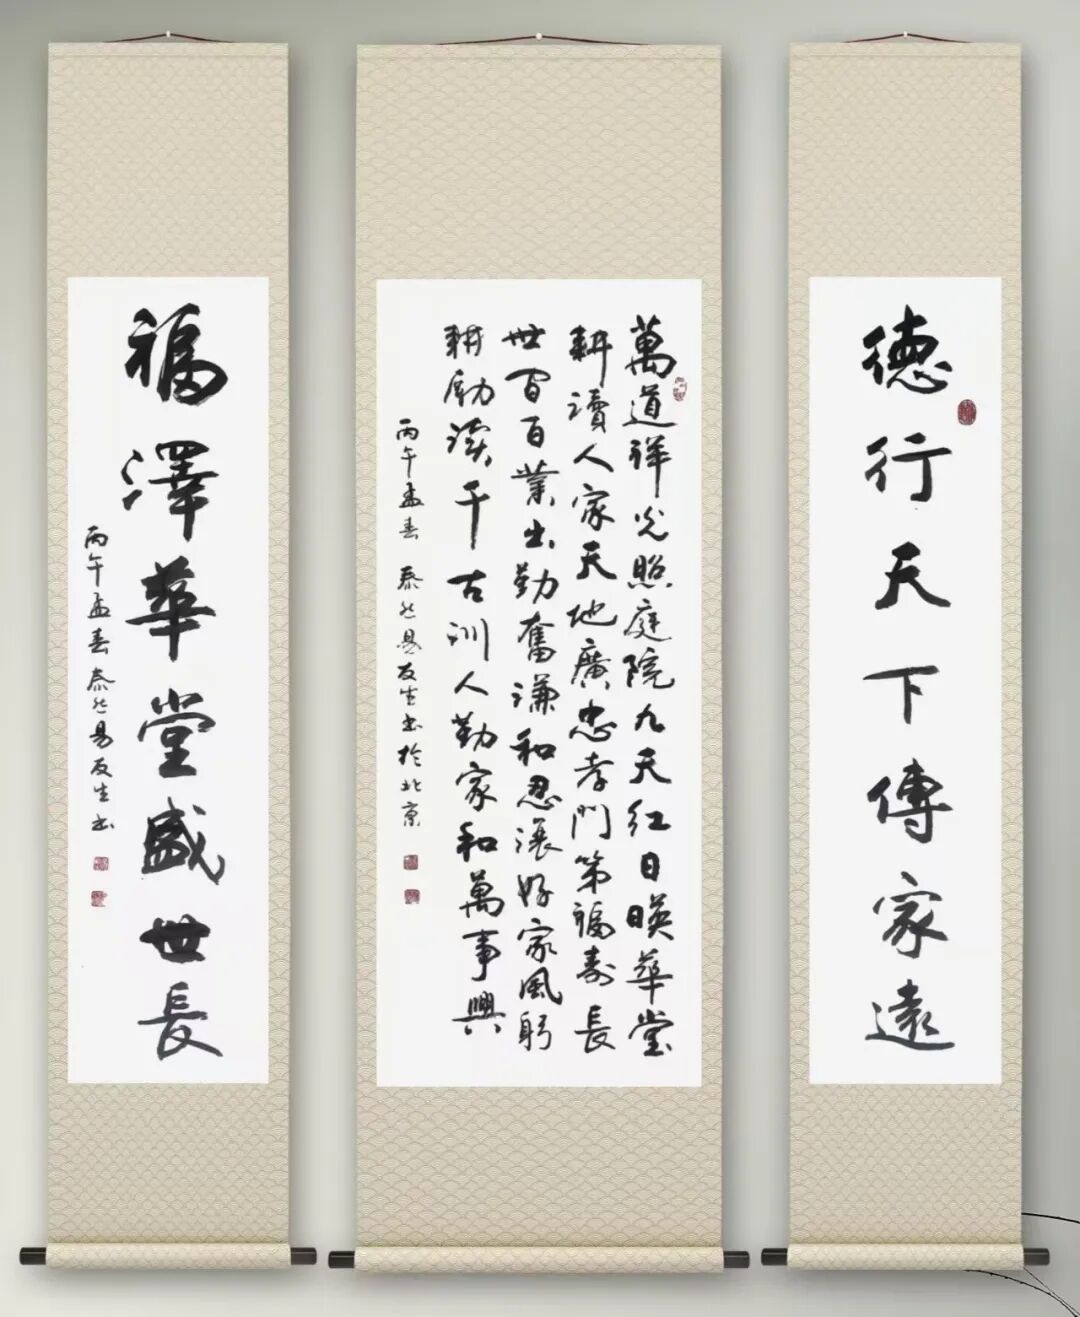 德行天下傳家遠
萬道祥光照庭院九天紅日暎華堂
耕讀人家天地廣忠孝門第福壽長
世間百業出勤奮謙和忍讓好家風躬
耕勵讀千古訓人勤家和萬事興
丙午孟春 泰然易友生书於北京
福澤華堂盛世長
丙午孟春泰然易友生书